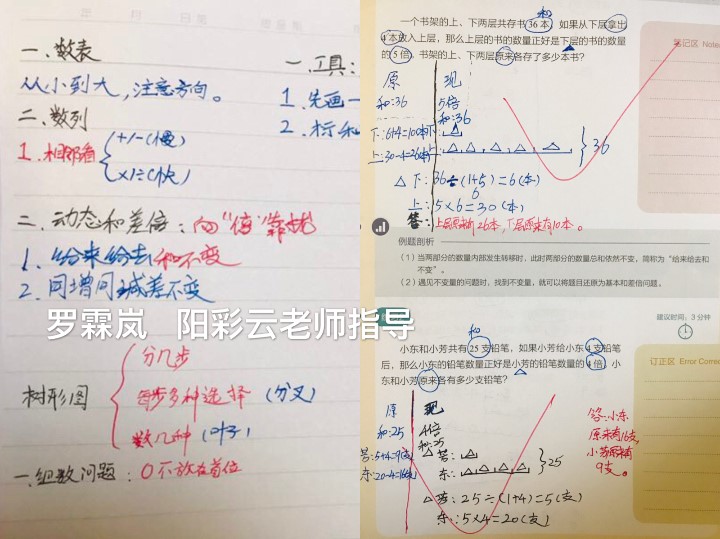 一、数表
从小到大,注意方向。
二、数列
1.相邻看
+/-(慢)
×/÷(快)
二、动态和差倍:向“倍”靠拢
1、给来给去和不变
2、同增同减差不变
罗霖岚 阳彩云老师指导
树形图
分几步
每步多种选择(分叉)
数几种(叶子)
一.组数问题:0不放在首位
一.工具:
1.先画一
2.标和
一个书架的上、下两层共存书36本,如果从下层拿出
4本放入上层,那么上层的书的数量正好是下层的书的数量
的5倍。书架的上、下两层原来各存了多少本书?
笔记区 Note
和
原 现
和:36 5倍
和:36
下:6+4=10(本) 下:
上:30-4=26(本) 上:
36
下:36÷(1+5)=6(本)
上:5×6=30(本)
6
答:上层原来有26本,下层原来有10本。
例题剖析
(1)当两部分的数量内部发生转移时,此时两部分的数量总和依然不变,简称为“给来给去和
不变”。
(2)遇见不变量的问题时,找到不变量,就可以将题目还原为基本和差倍问题。
建议时间:3分钟
和
小东和小芳共有25支铅笔,如果小芳给小东4支铅笔
后,那么小东的铅笔数量正好是小芳的铅笔数量的4倍,小
东和小芳原来各有多少支铅笔?
订正区 Error Correc
原 现
和:25 4倍
和:25
芳:5+4=9(支) 芳:
东:20-4=16(支) 东:
25
芳:25÷(1+4)=5(支)
东:5×4=20(支)
答:小东
原来有16支,
小芳原来有
9支。